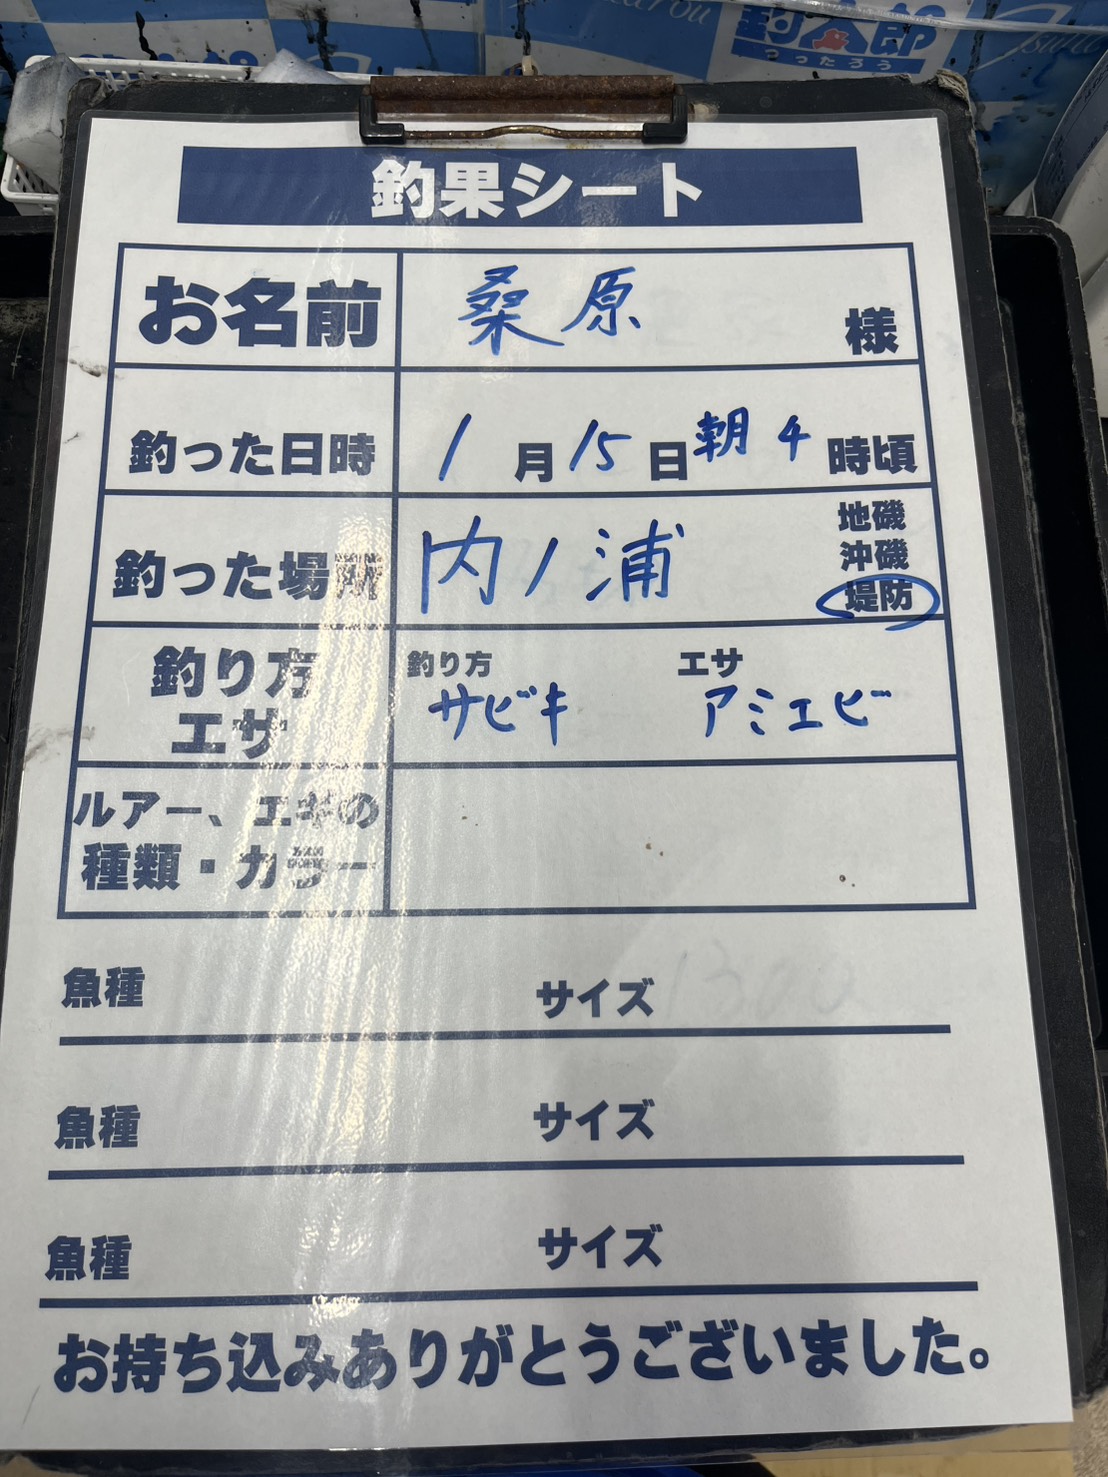 釣太郎
つったろう
釣果シート
お名前 桑原 様
釣った日時 1月15日朝4時頃
釣った場所 内ノ浦 地磯
沖磯
堤防
釣り方 釣り方 エサ
エサ サビキ アミエビ
ルアー、エギの
種類・カラー
魚種 サイズ
魚種 サイズ
魚種 サイズ
お持ち込みありがとうございました。